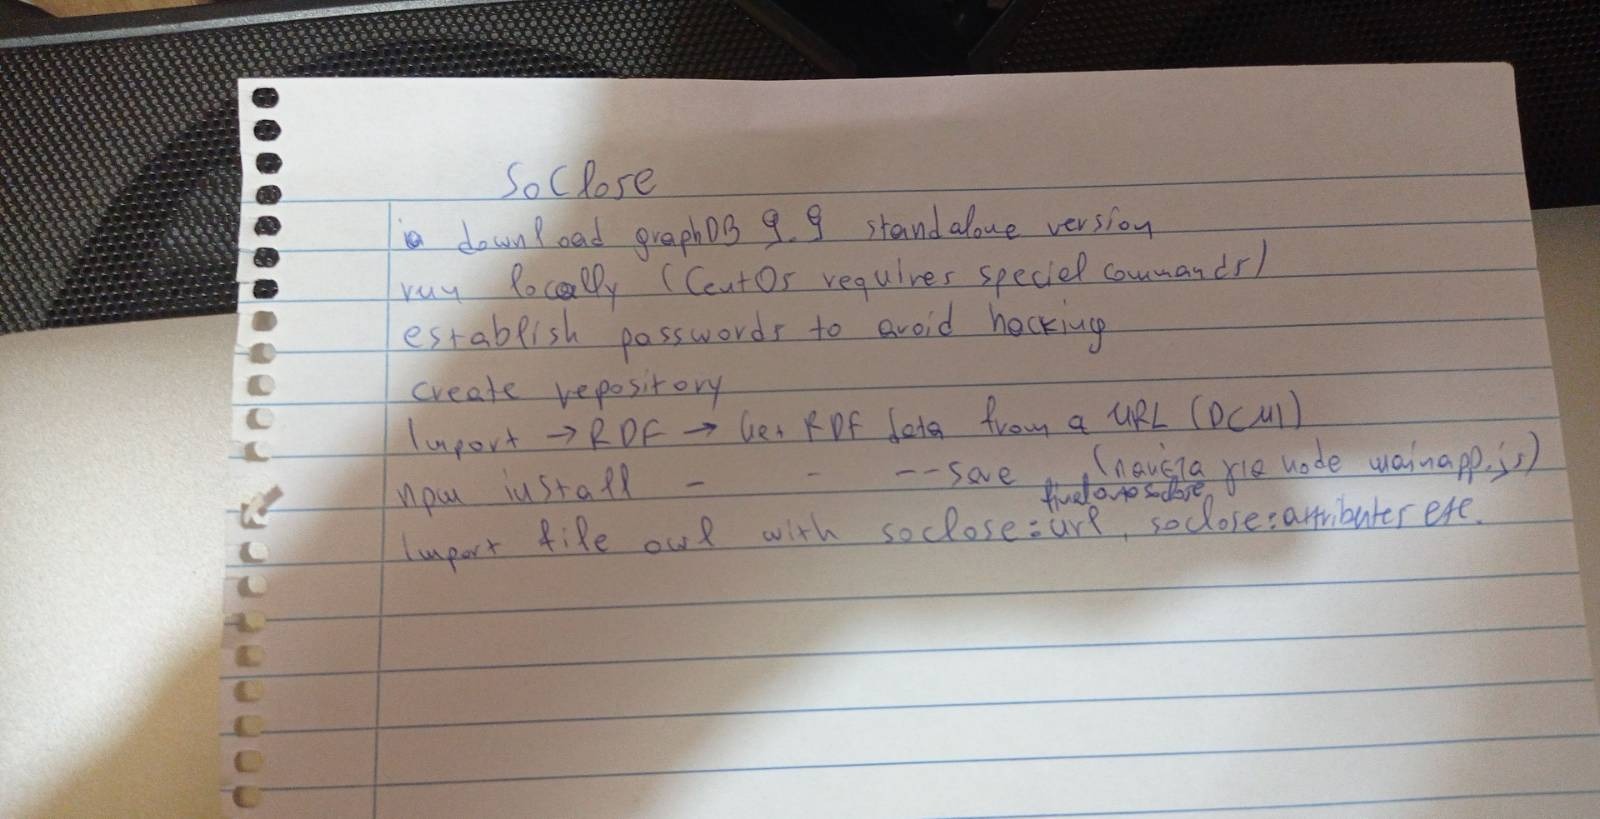 SoClose
download graphDB 9.9 standalone version
run locally (CentOs requires special commands)
establish passwords to avoid hacking
create repository
Import → RDF → Get RDF data from a URL (DCMI)
npm install - - --save (πακέτα για node mainapp.js)
Import file owl with soclose:url, soclose:attributes etc.